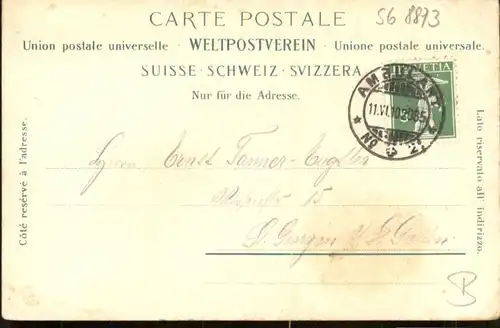 CARTE POSTALE
SG 8873
Union postale universelle · WELTPOSTVEREIN · Unione postale universale.
SUISSE · SCHWEIZ · SVIZZERA
Nur für die Adresse.
HELVETIA
AMBULANT
11.VI.10 2035
No 21
Côté reservé à l'adresse.
Lato riservato all' indirizzo.
Herrn Ernst Tanner-
15
St. Gallen
B